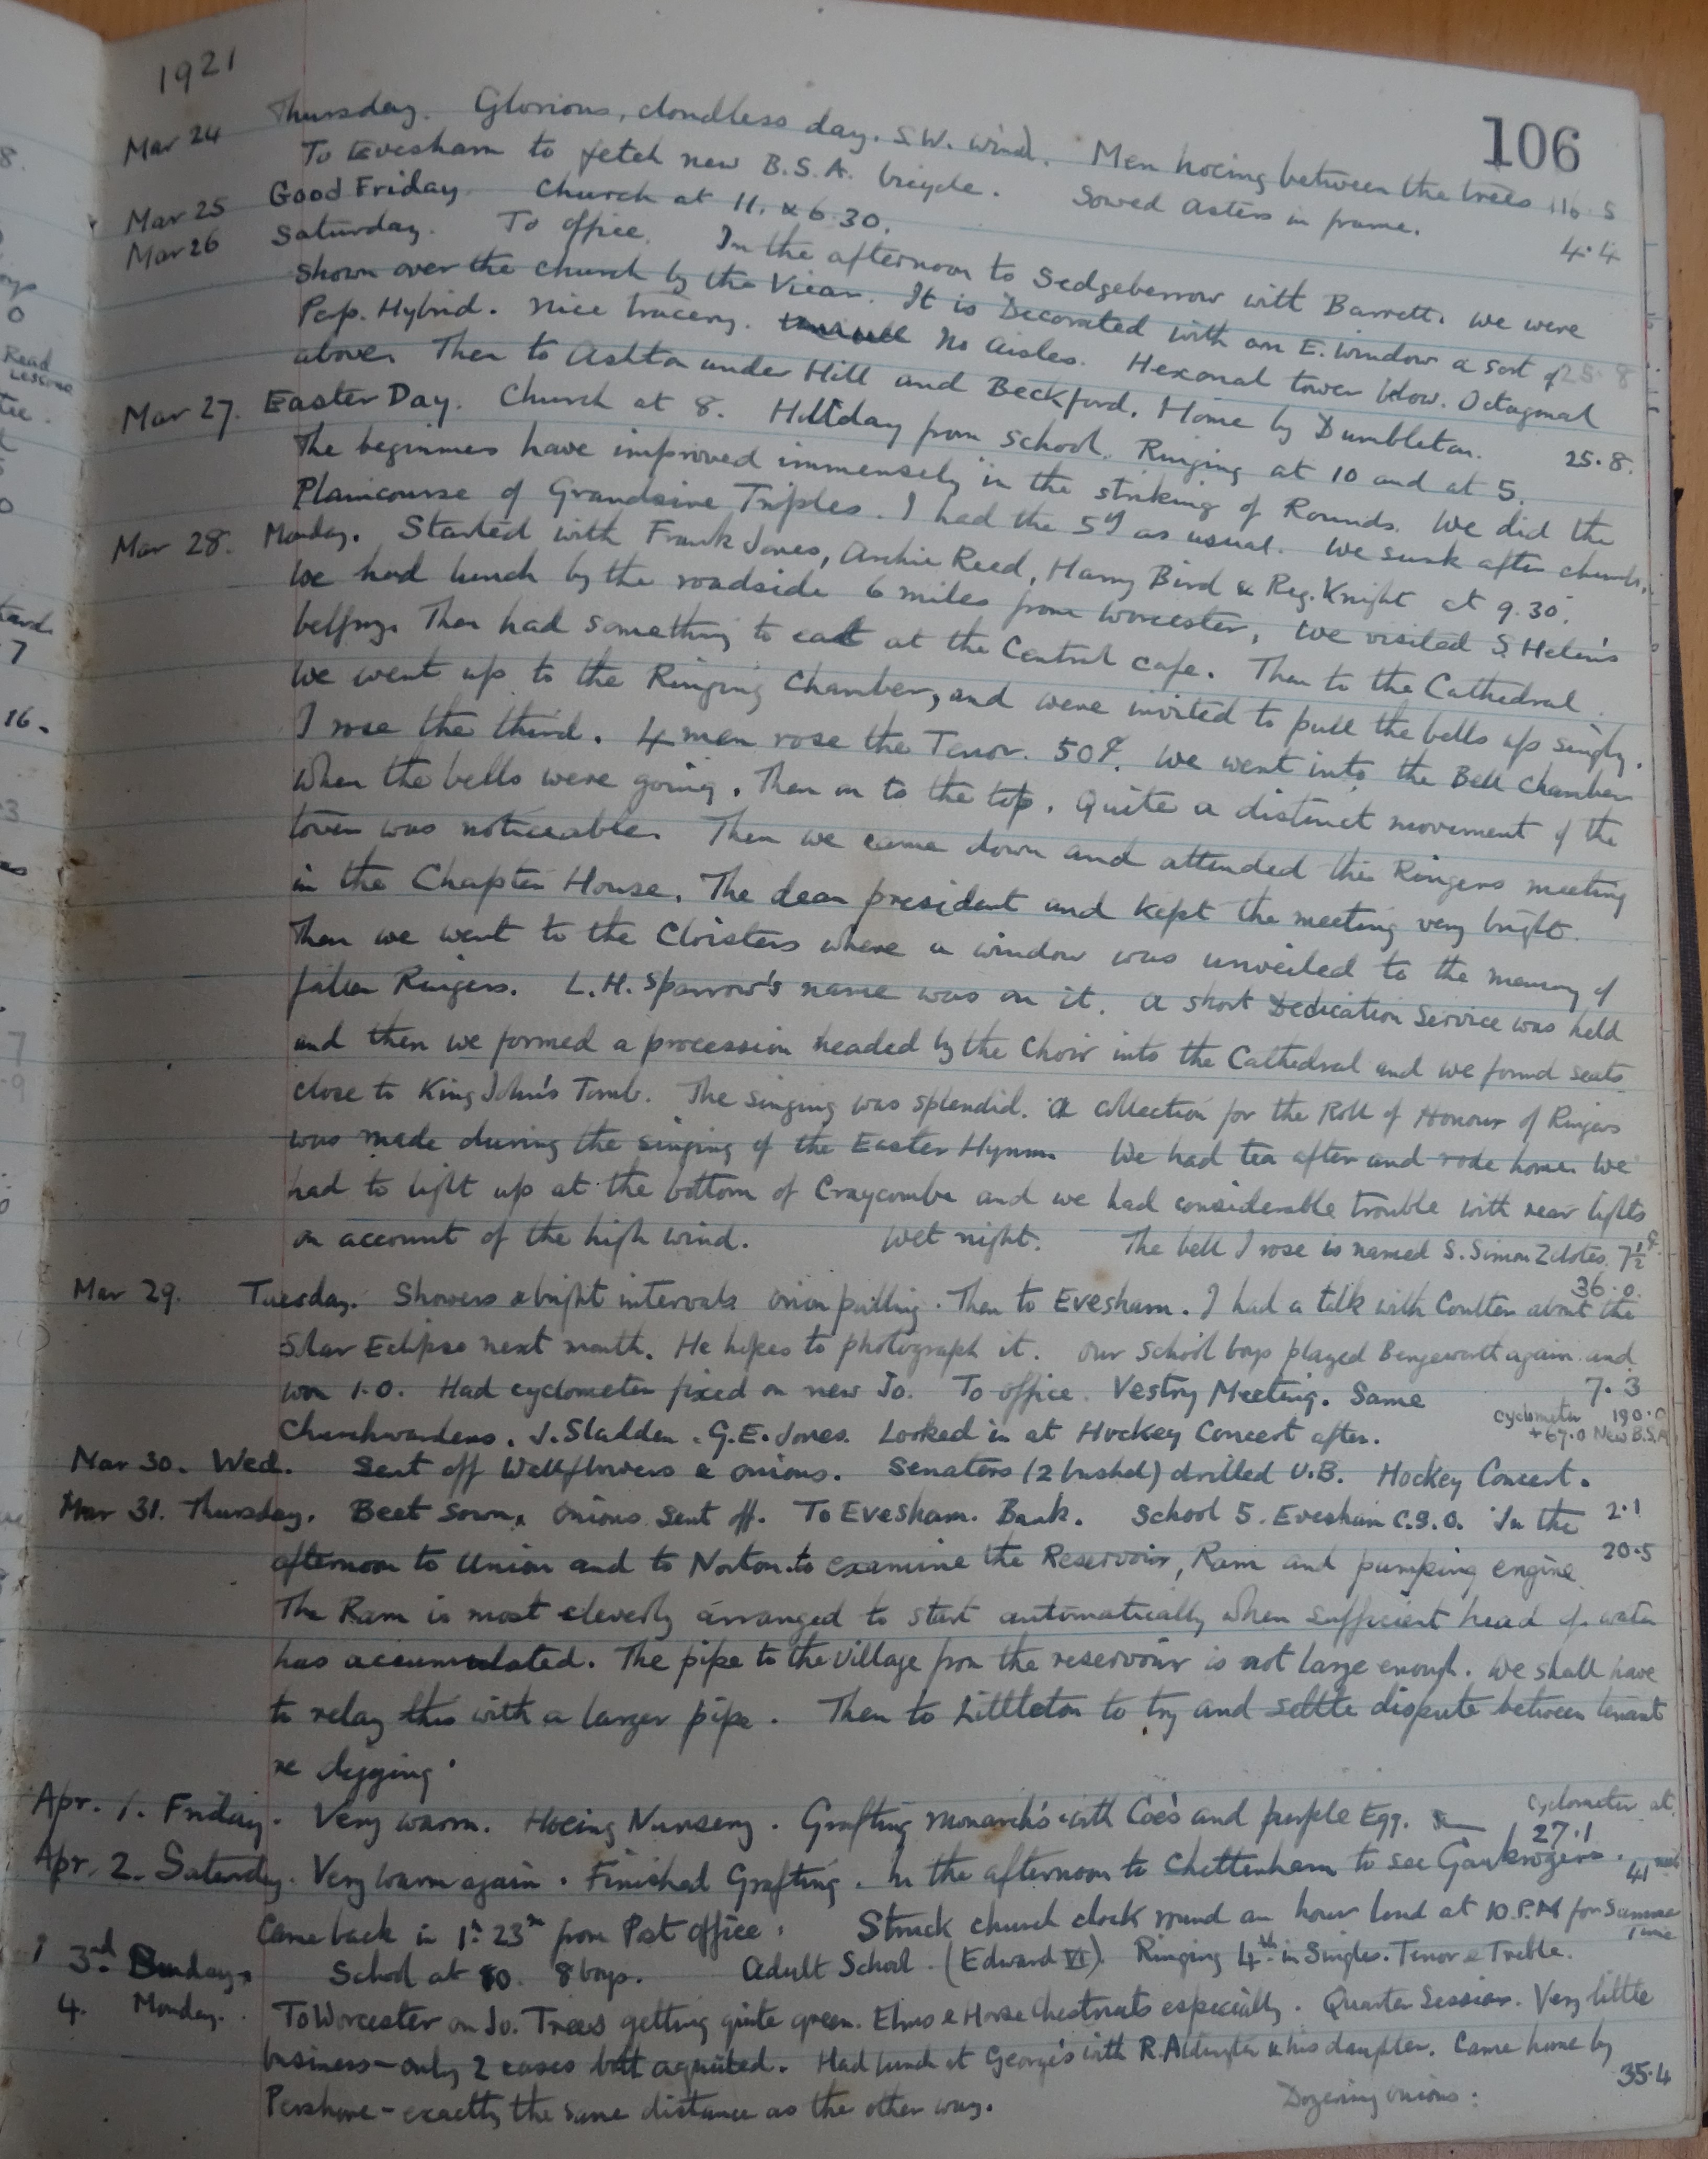 1921
106
Mar 24 Thursday. Glorious, cloudless day. S.W. wind. Men hoeing between the trees 116.5
To Evesham to fetch new B.S.A. bicycle. Sowed Asters in frame.
Mar 25 Good Friday. Church at 11. & 6.30. 4.4
Mar 26 Saturday. To office. In the afternoon to Sedgeberrow with Barrett. We were
shown over the church by the Vicar. It is Decorated with an E. window a sort of 25.8
Perp. Hybrid. Nice tracery. No aisles. Hexonal tower below. Octagonal
above. Then to Ashton under Hill and Beckford. Home by Dumbleton. 25.8.
Mar 27. Easter Day. Church at 8. Holiday from school. Ringing at 10 and at 5.
The beginners have improved immensely in the striking of Rounds. We did the
Plaincourse of Grandsire Triples. I had the 5th as usual. We sunk after church.
Mar 28. Monday. Started with Frank Jones, Archie Reed, Harry Bird & Reg. Knight at 9.30.
We had lunch by the roadside 6 miles from Worcester, We visited S. Helen's
belfry. Then had something to eat at the Central Cafe. Then to the Cathedral.
We went up to the Ringing Chamber, and were invited to pull the bells up singly.
I rose the third. 4 men rose the Tenor. 50 We went into the Bell Chamber
when the bells were going. Then on to the top. Quite a distinct movement of the
tower was noticeable. Then we came down and attended the Ringers meeting
in the Chapter House. The dean president and kept the meeting very bright.
Then we went to the Cloisters where a window was unveiled to the memory of
fallen Ringers. L.H. Sparrow's name was on it. A short Dedication Service was held
and then we formed a procession headed by the Choir into the Cathedral and we found seats
close to King John's Tomb. The singing was splendid. A collection for the Roll of Honour of Ringers
was made during the singing of the Easter Hymn. We had tea after and rode home. We
had to light up at the bottom of Craycombe and we had considerable trouble with rear lights
on account of the high wind. Wet night. The bell I rose is named S. Simon Zelotes. 7½
36.0.
Mar 29. Tuesday. Showers & bright intervals Onion pulling. Then to Evesham. I had a talk with Coulter about the
Solar Eclipse next month. He hopes to photograph it. Our School boys played Bengeworth again and
won 1-0. Had cyclometer fixed on new Jo. To office. Vestry Meeting. Same 7.3
Churchwardens. J. Sladden. G.E. Jones. Looked in at Hockey Concert after. cyclometer 190.0
+67.0 New B.S.A
Mar 30. Wed. Sent off Wallflowers & onions. Senators (2 bushel) drilled U.B. Hockey Concert.
Mar 31. Thursday. Beet sown, Onions sent off. To Evesham. Bank. School 5. Evesham C.S.O. In the 2.1
afternoon to Union and to Norton to examine the Reservoir, Ram and pumping engine 20.5
The Ram is most cleverly arranged to start automatically when sufficient head of water
has accumulated. The pipe to the Village from the reservoir is not large enough. We shall have
to relay this with a larger pipe. Then to Littleton to try and settle dispute between tenant
re digging.
Apr. 1. Friday. Very warm. Hoeing Nursery. Grafting Monarch's with Coe's and purple Egg. cyclometer at
27.1
Apr. 2. Saturday. Very warm again. Finished Grafting. In the afternoon to Cheltenham to see Gaukrogers. 41
Came back in 1h 23m from Post office. Struck church clock round an hour loud at 10 P.M for Summer
Time
3rd Sunday. School at 10. 8 boys. Adult School. (Edward VI). Ringing 4th in Singles. Tenor & Treble.
4. Monday. To Worcester on Jo. Trees getting quite green. Elms & Horse Chestnuts especially. Quarter Session. Very little
business - only 2 cases both aquited. Had lunch at George's with R. Aldington & his daughter. Came home by
Pershore - exactly the same distance as the other way. 35.4
onions.